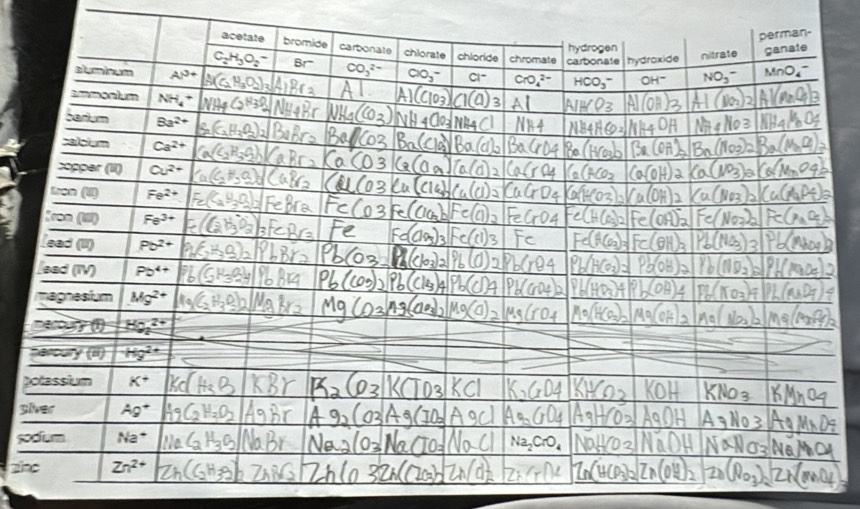 acetate bromide carbonate chlorate chloride chromate hydrogen carbonate hydroxide nitrate perman-ganate
C₂H₃O₂⁻ Br⁻ CO₃²⁻ ClO₃⁻ Cl⁻ CrO₄²⁻ HCO₃⁻ OH⁻ NO₃⁻ MnO₄⁻
aluminum Al³⁺ Al(C₂H₃O₂)₃ AlBr₃ Al Al(ClO3)3 Cl(Cl)3 Al Al(OH)3 Al(NO₃)3
ammonium NH₄⁺ NH4Br NH4(CO3) NH4ClO3 NH4Cl NH4 NH4HCO3 NH4OH NH4NO3 NH4MnO4
barium Ba²⁺ BaBr₂ BaCO3 Ba(Cl)₂ BaCrO4 Ba(HCO3)₂ Ba(OH)₂ Ba(NO3)₂ Ba(MnO4)₂
calcium Ca²⁺ Ca(C₂H₃O₂)₂ CaBr₂ CaCO3 Ca(Cl)₂ CaCrO4 Ca(HCO3 Ca(OH)₂ Ca(NO3)₂ Ca(MnO4)₂
copper (II) Cu²⁺ Cu(C₂H₃O₂)₂ CuBr₂ CuCO3 Cu(Cl)₂ CuCrO4 Cu(HCO3)₂ Cu(OH)₂ Cu(NO3)₂ Cu(MnO4)₂
iron (II) Fe²⁺ Fe(C₂H₃O₂)₂ FeBr₂ FeCO3 Fe(ClO3)₂ Fe(Cl)₂ FeCrO4 Fe(OH)₂ Fe(NO3)₂
iron (III) Fe³⁺ Fe(C₂H₃O₂)3 FeBr3 Fe Fe(ClO3)3 Fe(Cl)3 Fe Fe(HCO3)3 Fe(OH)3 Pb(NO3)3 Pb(MnO4)3
lead (II) Pb²⁺ Pb(C₂H₃O₂)₂ PbBr₂ PbCO3 Pb(ClO3)2 Pb(Cl)2 PbCrO4 Pb(HCO3)2 Pb(OH)2 Pb(NO3)2 Pb(MnO4)2
lead (IV) Pb⁴⁺ PbBr4 Pb(CO3)2 Pb(ClO3)4 Pb(Cl)4 Pb(CrO4)2 Pb(HCO3)4 Pb(OH)4 Pb(NO3)4 Pb(MnO4)4
magnesium Mg²⁺ Mg(C₂H₃O₂)₂ MgBr₂ MgCO3 Mg(ClO3)2 Mg(Cl)2 MgCrO4 Mg(HCO3)2 Mg(OH)2 Mg(NO3)2 Mg(MnO4)2
mercury (I) Hg₂²⁺
mercury (II) Hg²⁺
potassium K⁺ KBr K₂CO3 KClO3 KCl K₂CrO4 KHCO3 KOH KNO3 KMnO4
silver Ag⁺ AgC₂H₃O₂ AgBr Ag2CO3 AgClO3 AgCl Ag₂CrO4 AgHCO3 AgOH AgNO3 AgMnO4
sodium Na⁺ NaC₂H₃O₂ NaBr Na2CO3 NaClO3 NaCl Na₂CrO₄ NaHCO3 NaOH NaNO3 NaMnO4
zinc Zn²⁺ Zn(C₂H₃O₂)₂ ZnBr₂ ZnCO3 Zn(ClO3)₂ Zn(Cl)₂ ZnCrO4 Zn(HCO3)2 Zn(OH)2 Zn(NO3)2 Zn(MnO4)2